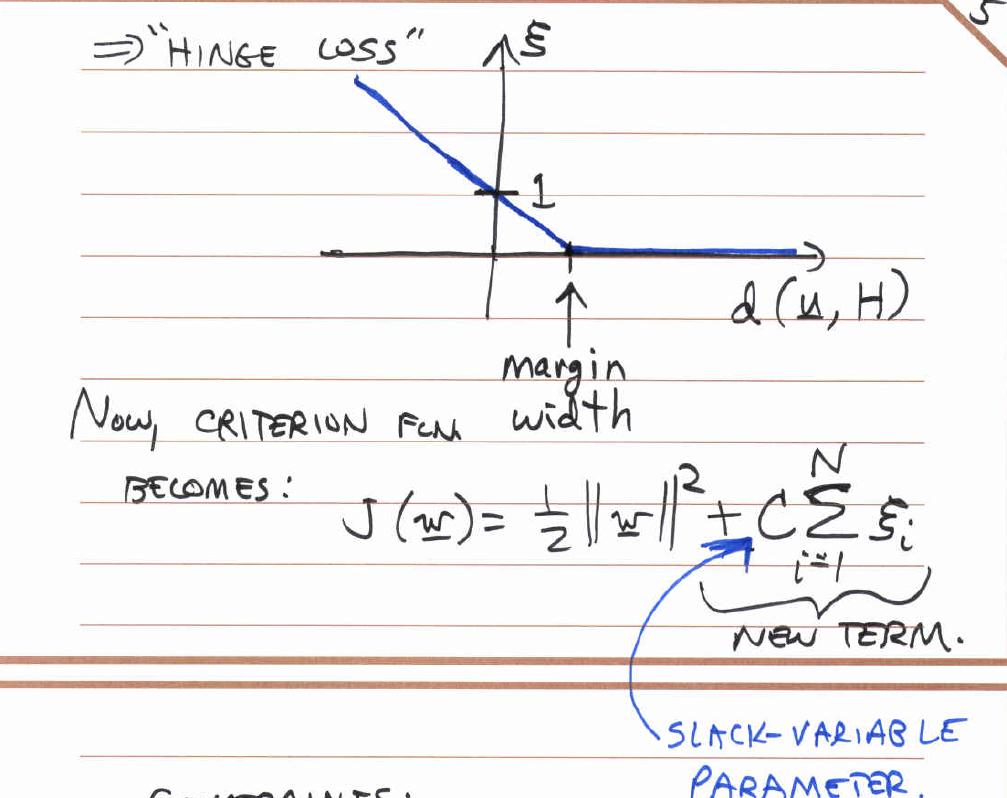 5
⇒ "HINGE LOSS"
ξ
1
d(u, H)
margin
width
NOW, CRITERION FCN.
BECOMES:
J(w) = 1/2 ||w||² + C ∑_{i=1}^{N} ξ_i
NEW TERM.
SLACK-VARIABLE
PARAMETER.
CONSTRAINTS: